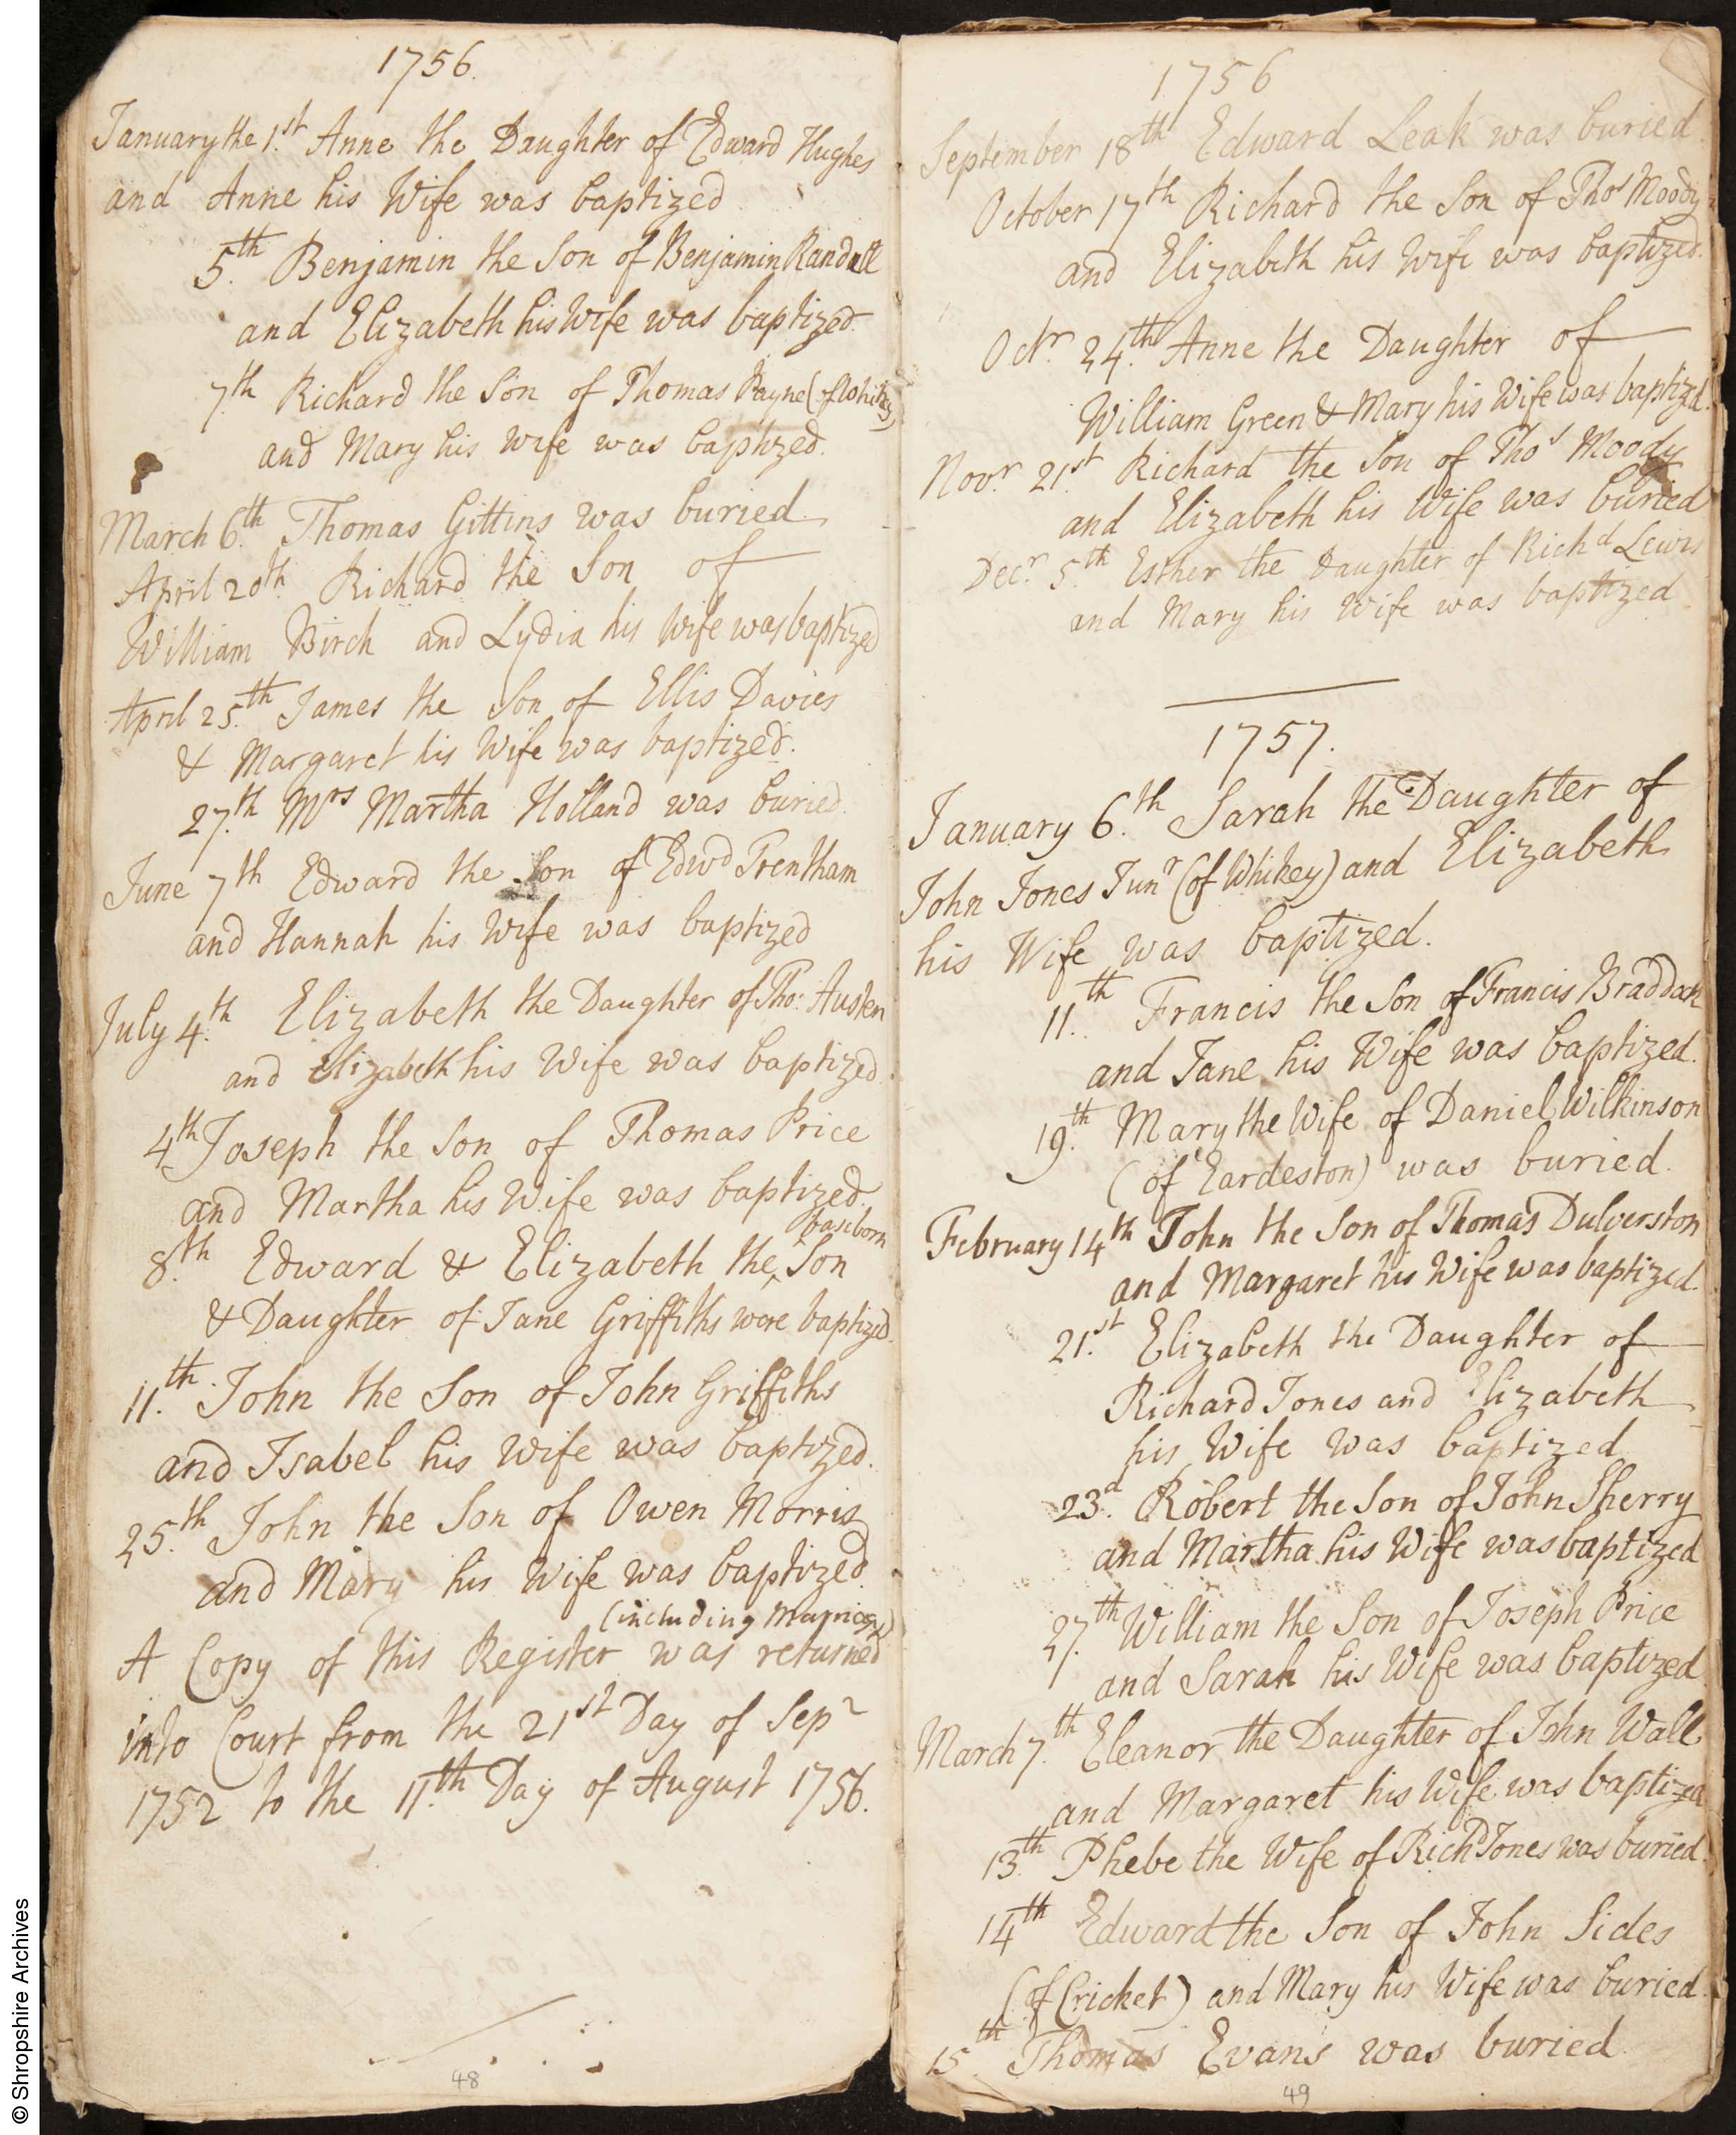 1756.
January the 1.st Anne the Daughter of Edward Hughes
and Anne his Wife was baptized
5.th Benjamin the Son of Benjamin Randall
and Elizabeth his Wife was baptized.
7.th Richard the Son of Thomas Payne (of Whikey)
and Mary his Wife was baptized.
March 6.th Thomas Gittins was buried.
April 20th. Richard the Son of
William Birch and Lydia his Wife was baptized
April 25.th James the Son of Ellis Davies
& Margaret his Wife was baptized.
27.th Mrs Martha Holland was buried.
June 7th Edward the Son of Edwd Trentham
and Hannah his Wife was baptized
July 4.th Elizabeth the Daughter of Tho: Austen
and Elizabeth his Wife was baptized
4th Joseph the Son of Thomas Price
and Martha his Wife was baptized.
baseborn
8.th Edward & Elizabeth the ‸ Son
& Daughter of Jane Griffiths were baptized.
11.th John the Son of John Griffiths
and Isabel his Wife was baptized.
25.th John the Son of Owen Morris
and Mary his Wife was baptized.
(including Marriages)
A Copy of this Register was returned
into Court from the 21st Day of Sepr
1752 to the 11.th Day of August 1756.
48
1756
September 18th Edward Leak was buried
October 17th Richard the Son of Thos Moody
and Elizabeth his Wife was baptized.
Octr. 24.th Anne the Daughter of
William Green & Mary his Wife was baptized.
Novr. 21.st Richard the Son of Thos Moody
and Elizabeth his Wife was buried
Decr. 5.th Esther the Daughter of Richd Lewis
and Mary his Wife was baptized
1757.
January 6.th Sarah the Daughter of
John Jones Junr (of Whikey) and Elizabeth
his Wife was baptized.
11.th Francis the Son of Francis Braddok
and Jane his Wife was baptized.
19.th Mary the Wife of Daniel Wilkinson
(of Eardeston) was buried.
February 14th John the Son of Thomas Dulverston
and Margaret his Wife was baptized.
21.st Elizabeth the Daughter of
Richard Jones and Elizabeth
his Wife was baptized
23.d Robert the Son of John Sherry
and Martha his Wife was baptized
27.th William the Son of Joseph Price
and Sarah his Wife was baptized
March 7.th Eleanor the Daughter of John Wall
and Margaret his Wife was baptized
13.th Phebe the Wife of Richd Jones was buried.
14th Edward the Son of John Sides
(of Cricket) and Mary his Wife was buried.
15th Thomas Evans was buried
49
© Shropshire Archives